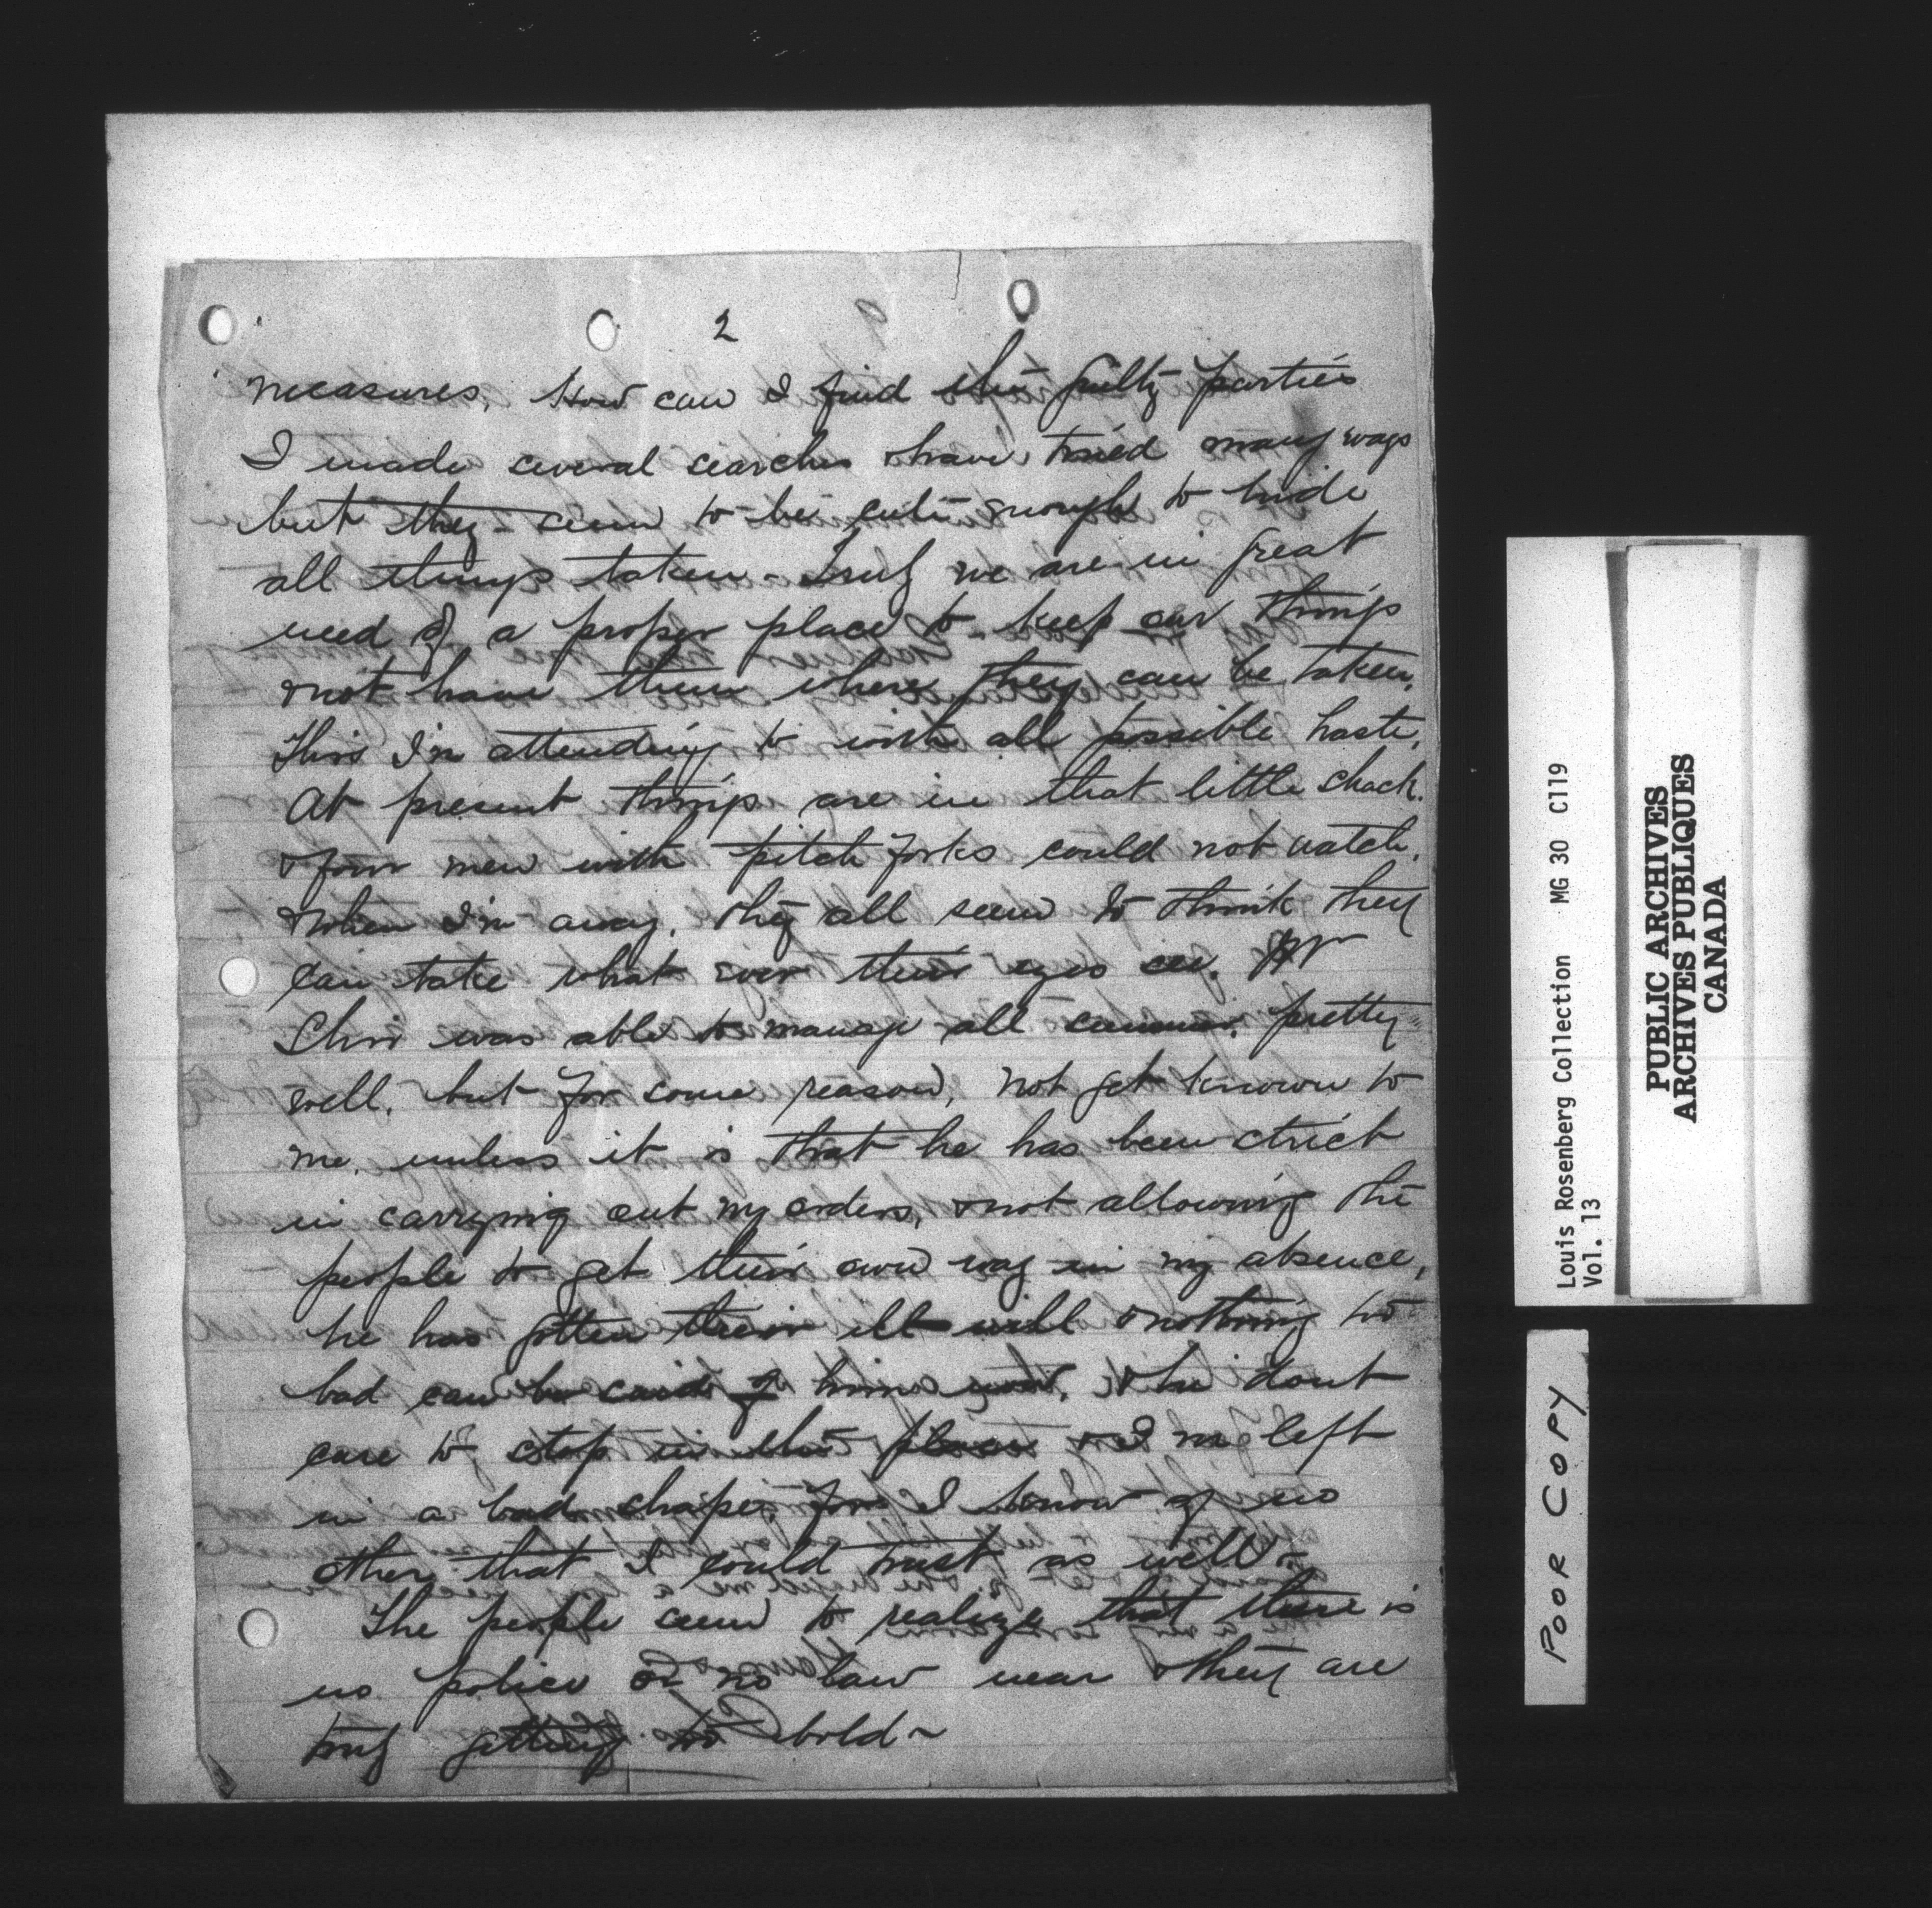 2
measures. How can I find the guilty parties
I made several searches & have tried many ways
but they seem to be cute enough to hide
all things taken - Truly we are in great
need of a proper place to keep our things
& not have them where they can be taken.
This I'm attending to with all possible haste.
At present things are in that little shack.
& four men with pitch forks could not watch.
& when I'm away, they all seem to think they
can take what ever their eyes see.
Chris was able to manage all summer pretty
well, but for some reason, not yet known to
me, unless it is that he has been strict
in carrying out my orders, & not allowing the
people to get their own way in my absence,
he has gotten their ill will & nothing too
bad can be said of him now, & he dont
care to stop in the place & I'm left
in a bad shape, for I know of no
other that I could trust as well -
The people seem to realize that there is
no police or no law near & they are
truly getting too bold ~
Louis Rosenberg Collection MG 30 C119
Vol. 13
PUBLIC ARCHIVES
ARCHIVES PUBLIQUES
CANADA
POOR COPY